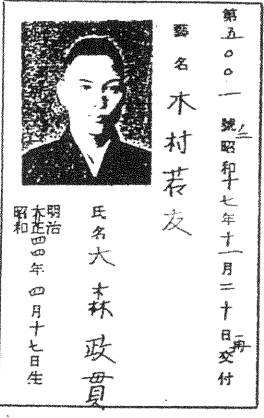 第五〇〇一号ノ二 昭和十七年十一月二十日再交付
藝名 木村若友
氏名 大森政貫
明治
大正四四年 四月十七日生
昭和